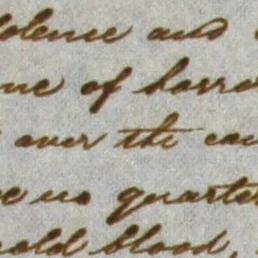 olence and
ne of horro
over the cau
e no quarter
cold blood,